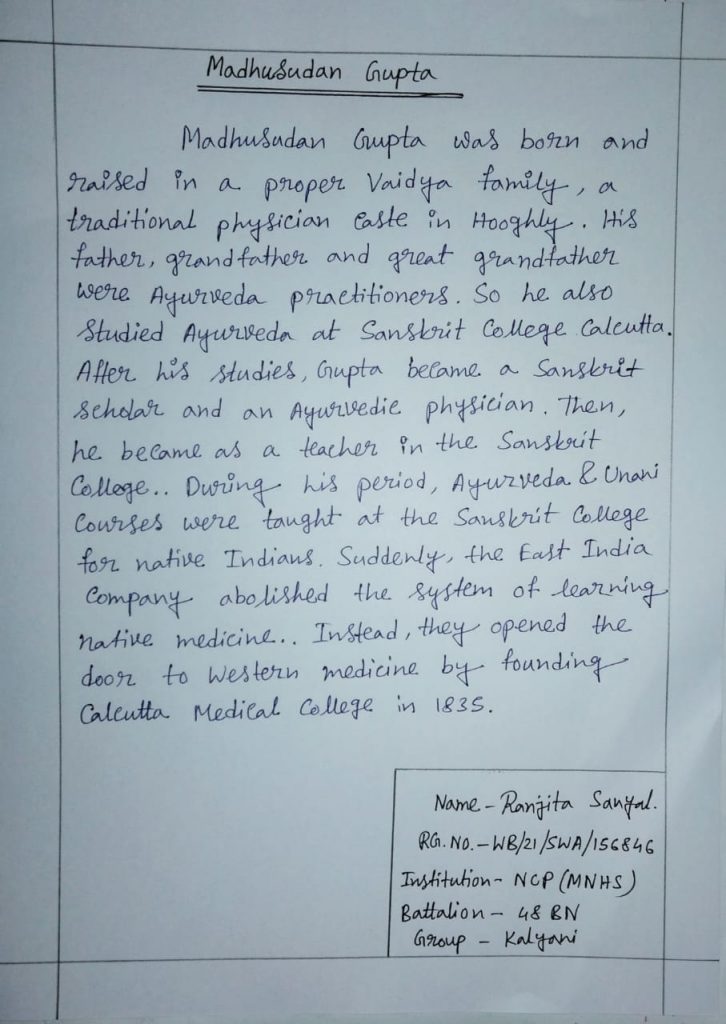 Madhusudan Gupta
Madhusudan Gupta was born and
raised in a proper Vaidya family, a
traditional physician caste in Hooghly. His
father, grandfather and great grandfather
were Ayurveda practitioners. So he also
Studied Ayurveda at Sanskrit College Calcutta.
After his studies, Gupta became a Sanskrit
Scholar and an Ayurvedic physician. Then,
he became as a teacher in the Sanskrit
College.. During his period, Ayurveda & Unani
Courses were taught at the Sanskrit College
for native Indians. Suddenly, the East India
Company abolished the system of learning
native medicine.. Instead, they opened the
door to Western medicine by founding
Calcutta Medical College in 1835.
Name - Ranjita Sanyal.
RG. NO. - WB/21/SWA/156846
Institution - NCP (MNHS)
Battalion - 48 BN
Group - Kalyani